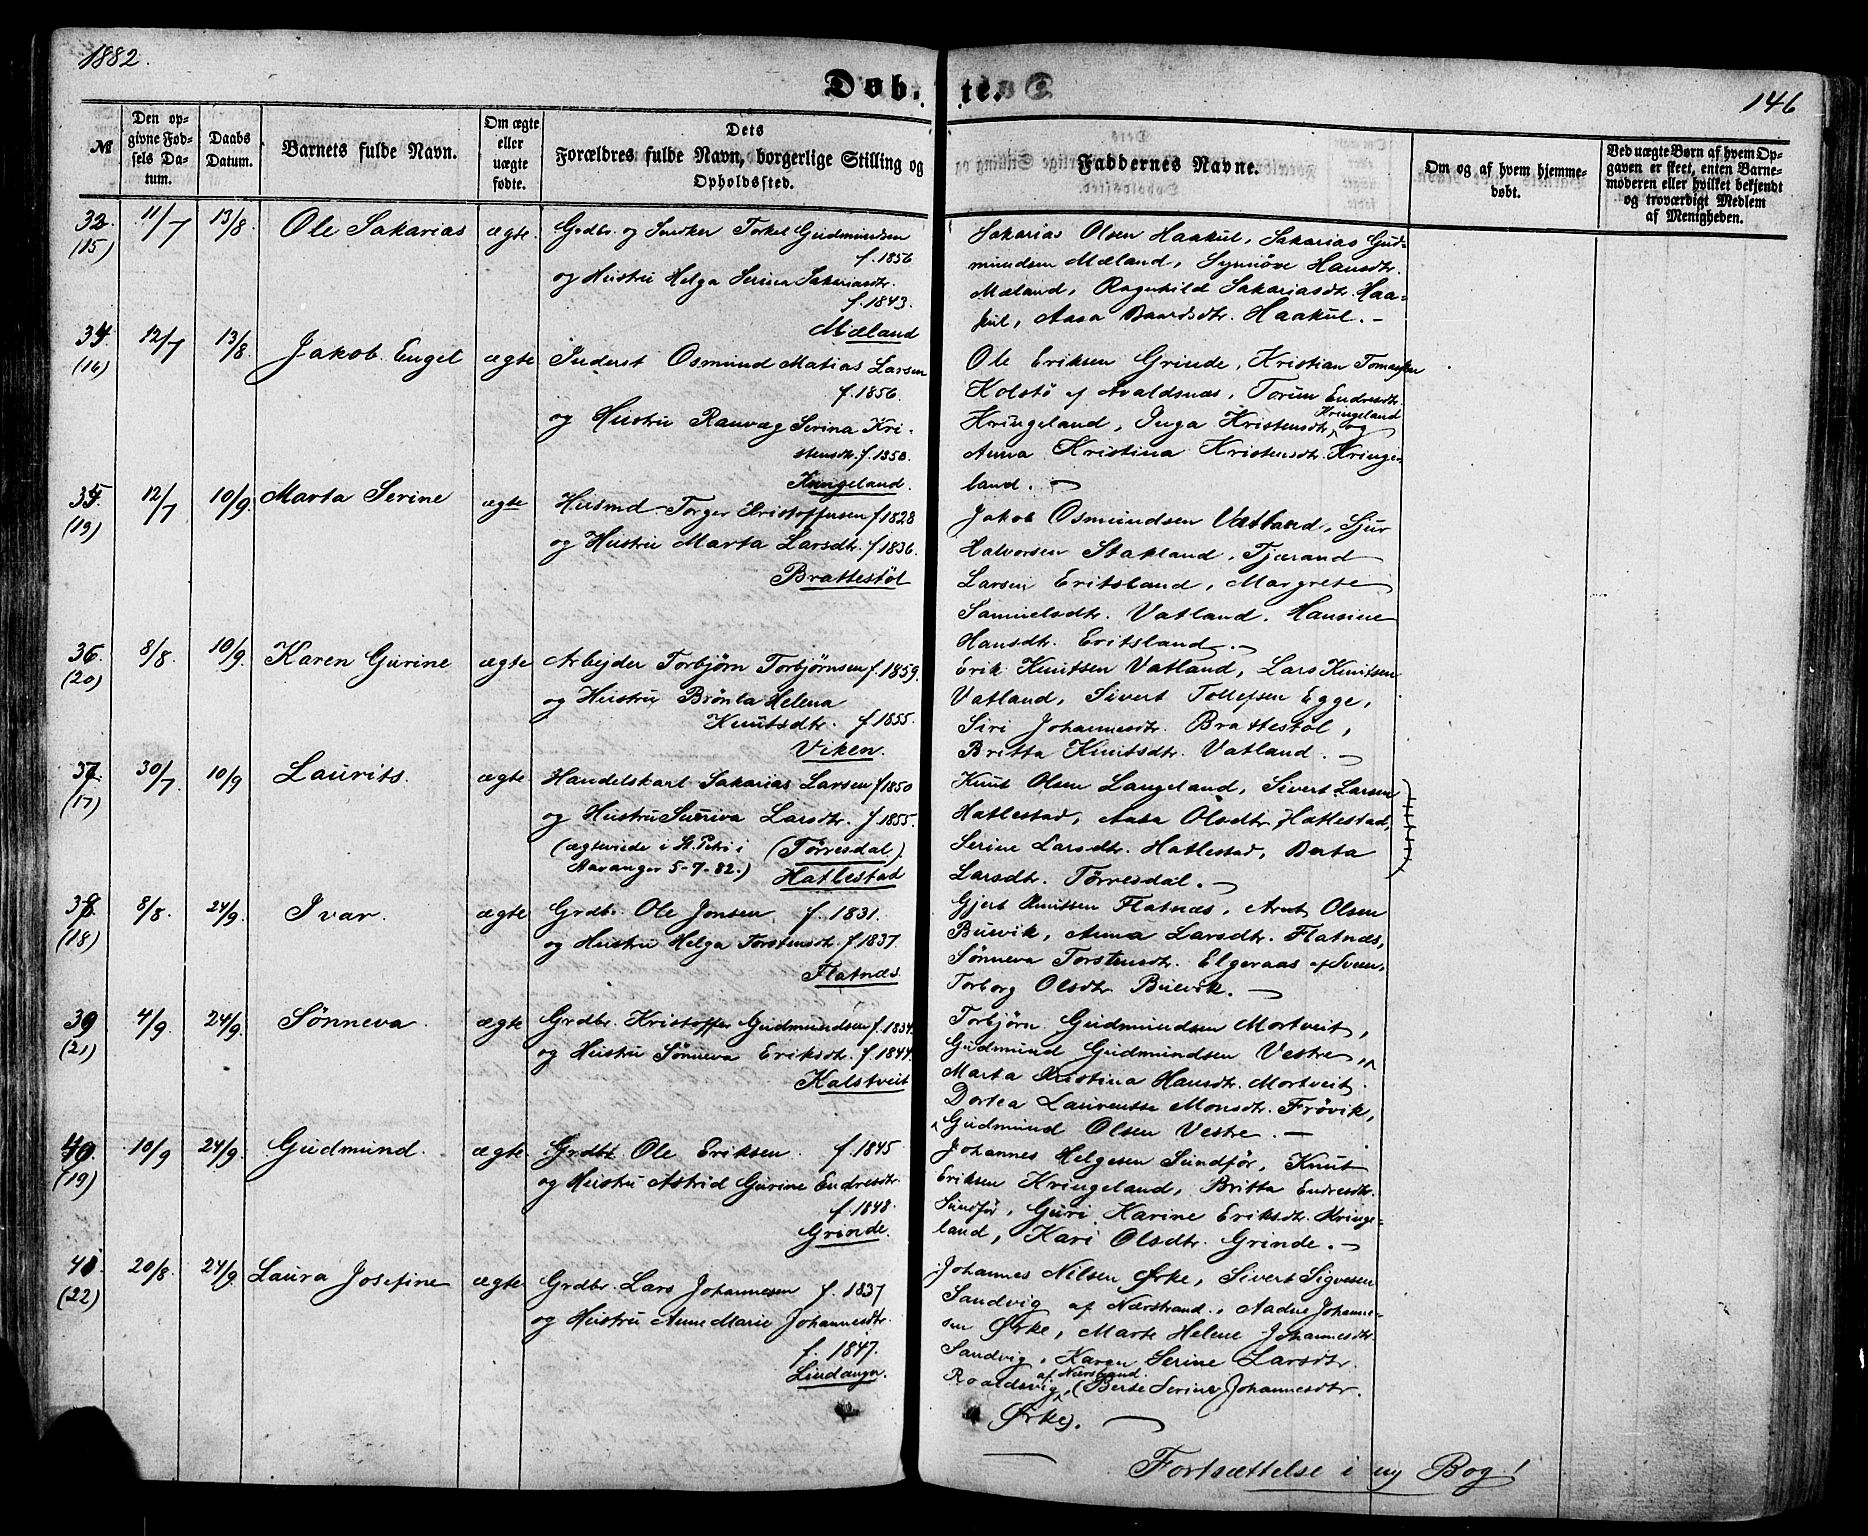 1882.
Døbte.
146
№
Den opgivne Fødsels Datum.
Daabs Datum.
Barnets fulde Navn.
Om ægte eller uægte fødte.
Dets Forældres fulde Navn, borgerlige Stilling og Opholdssted.
Faddernes Navne.
Om og af hvem hjemmedøbt.
Ved uægte Børn af hvem Opgaven er skeet, enten Barnemoderen eller hvilket bekjendt og troværdigt Medlem af Menigheden.
(15) 11/7 13/8 Ole Sakarias ægte. Grdbr. og Snedker Torkel Gudmundsen
f. 1856
og Hustru Helga Serina Sakariasdtr.
f. 1843.
Mæland
Sakarias Olsen Haakul, Sakarias Gud=
mundsen Mæland, Synnöve Hansdtr.
Mæland, Ragnhild Sakariasdtr. Haa=
kul, Aasa Baardsdtr. Haakul. –
34. (16) 12/7 13/8. Jakob Engel ægte Inderst Osmund Matias Larsen
f. 1856.
og Hustru Ranvæg Serina Kri-
stensdtr. f. 1850.
Kringeland.
Ole Eriksen Grinde, Kristian Tomassen
Kolstö af Avaldsnæs, Torun Endresdtr.
Kringeland, Inga Kristensdtr. Kringeland og
Anna Kristina Kristensdtr. Kringe=
land. –
35. (13) 12/7 10/9. Marta Serine ægte Husmd. Torger Kristoffersen f. 1828
og Hustru Marta Larsdtr. f. 1836.
Brattestöl
Jakob Osmundsen Vatland, Sjur
Halvorsen Stakland, Tjærand
Larsen Eritsland, Margrete
Samuelsdtr. Vatland. Hansine
Hansdtr. Eritsland. –
36. (20) 8/8. 10/9. Karen Gurine ægte Arbejder Torbjörn Torbjörnsen f. 1859.
og Hustru Brönla Helena
Knutsdtr. f. 1855.
Viken.
Erik Knutsen Vatland, Lars Knutsen
Vatland, Sivert Tollefsen Egge,
Siri Johannesdtr. Brattestöl,
Britta Knutsdtr. Vatland. –
37. (17) 30/7 10/9 Laurits. ægte Handelskarl Sakarias Larsen f. 1850
og Hustru Sunniva Larsdtr. f. 1855.
(ægteviede i St. Petri i (Törresdal).
Stavanger 5-7-82.) Hatlestad
Knut Olsen Langeland, Sivert Larsen
Hatlestad, Aasa Olsdtr. Hatlestad,
Serine Larsdtr. Hatlestad, Berta
Larsdtr. Törresdal. –
38. (18) 8/8. 24/9. Ivar. ægte Grdbr. Ole Jonsen, f. 1831.
og Hustru Helga Torstensdtr. f. 1837.
Flatnæs
Gjert Knutsen Flatnæs, Arnt Olsen
Buevik, Anna Larsdtr. Flatnæs,
Sönneva Torstensdtr. Elgeraas af Sveen,
Torborg Olsdtr. Buevik. –
39 (21) 4/9. 24/9. Sönneva. ægte Grdbr. Kristoffer Gudmundsen f. 1834.
og Hustru Sönneva Eriksdtr. f. 1844.
Kalstveit
Torbjörn Gudmundsen Mortveit,
Gudmund Gudmundsen Vestre,
Marta Kristina Hansdtr. Mortveit.
Dortea Laurentse Monsdtr. Frövik,
Gudmund Olsen Vestre. –
40. (19) 10/9 24/9. Gudmund. ægte Grdbr. Ole Eriksen. f. 1845
og Hustru Astrid Gurine Endresdtr.
f. 1848.
Grinde.
Johannes Helgesen Sundför, Knut
Eriksen Kringeland, Britta Endresdtr.
Sundför, Guri Karine Eriksdtr. Kringe=
land, Kari Olsdtr. Grinde. –
41. (22) 20/8. 24/9. Laura Josefine ægte Grdbr. Lars Johannesen f. 1837
og Hustru Anne Marie Johannesdtr.
f. 1847.
Lindanger.
Johannes Nilsen Örke, Sivert Sigvesen
Sandvig af Nærstrand, Aadne Johanne-
sen Örke, Marte Helene Johannesdtr.
Sandvig, Karen Serine Larsdtr.
Roaldsvig, af Nærstrand. (Berte Serine Johannesdtr.
Örke). –
Fortsættelse i ny Bog!